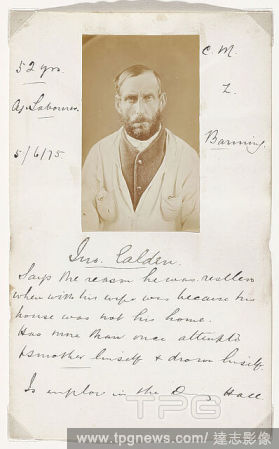 52 yrs.
Ag Labourer.
5/6/75
C. M.
L.
Barming.
Jno. Calden.
Says the reason he was restless
when with his wife was because his
house was not his home.
Has more than once attempted
to smother himself & drown himself.
Is employ in the Hall
TPG
www.tpgnews.com/達志影像